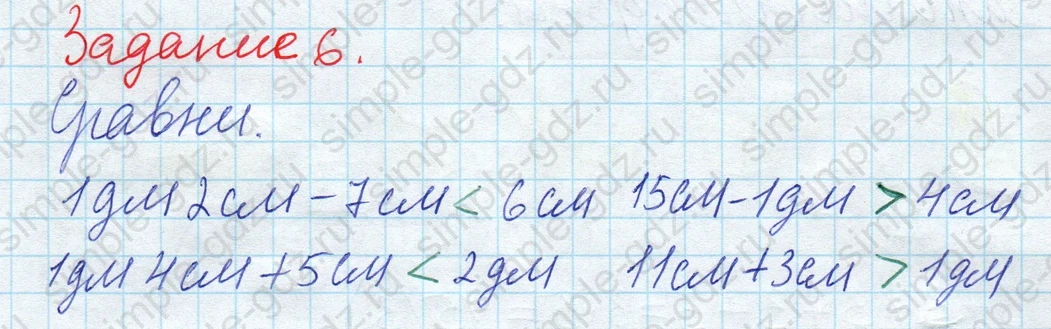 Задание 6.
Сравни.
1дм 2см - 7см < 6см 15см - 1дм > 4см
1дм 4см + 5см < 2дм 11см + 3см > 1дм
simple-gdz.ru